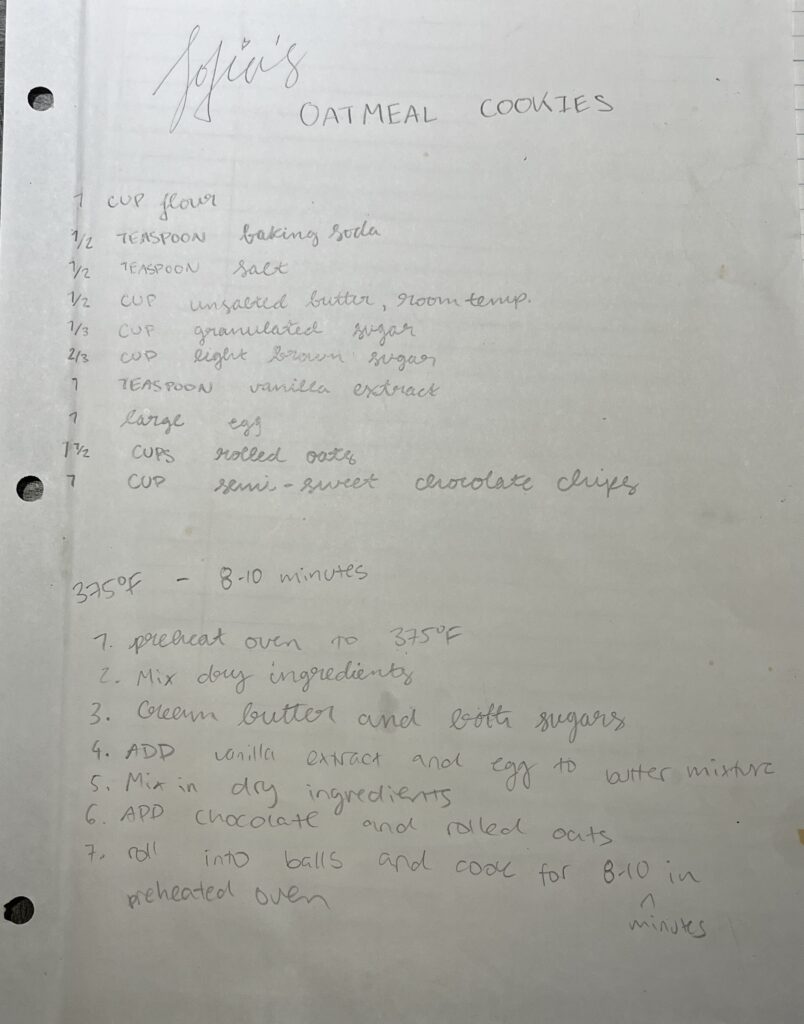 Sofia's
OATMEAL COOKIES
1 CUP flour
1/2 TEASPOON baking soda
1/2 TEASPOON salt
1/2 CUP unsalted butter, room temp.
1/3 CUP granulated sugar
2/3 CUP light brown sugar
1 TEASPOON vanilla extract
1 large egg
1 1/2 CUPS rolled oats
1 CUP semi-sweet chocolate chips
375°F - 8-10 minutes
1. preheat oven to 375°F
2. Mix dry ingredients
3. Cream butter and both sugars
4. ADD vanilla extract and egg to butter mixture
5. Mix in dry ingredients
6. ADD chocolate and rolled oats
7. roll into balls and cook for 8-10 in
preheated oven
^
minutes